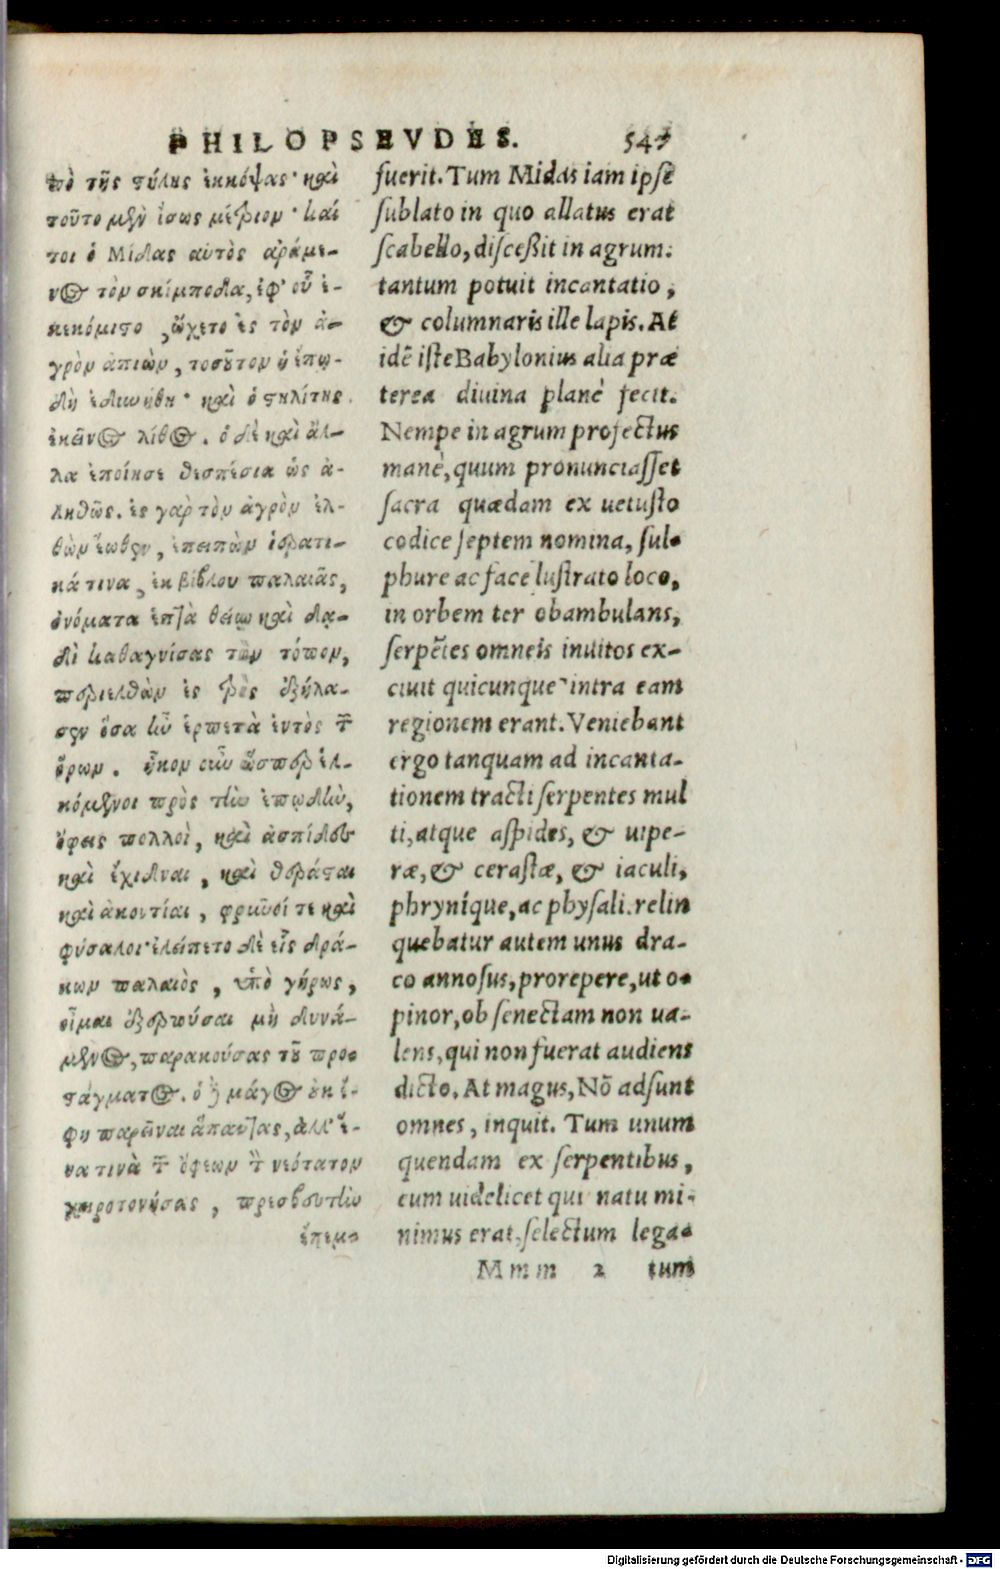 PHILOPSEVDES. 547
πὸ τῆς στήλης ἐκκόψας· καὶ
τοῦτο μὲν ἴσως μέτριον· καί
τοι ὁ Μίδας αὐτὸς ἀράμε-
νος τὸν σκίμποδα, ἐφ' οὗ ἐ-
κεκόμιστο, ᾤχετο ἐς τὸν ἀ-
γρὸν ἀπιὼν, τοσοῦτον ἡ ἐπῳ-
δὴ ἐδυνήθη· καὶ ὁ στηλίτης
ἐκεῖνος λίθος. ὁ δὲ καὶ ἄλ-
λα ἐποίησε θεσπέσια ὡς ἀ-
ληθῶς. ἐς γὰρ τὸν ἀγρὸν ἐλ-
θὼν ἕωθεν, ἐπειπὼν ἱερατι-
κά τινα, ἐκ βίβλου παλαιᾶς,
ὀνόματα ἑπτὰ θείῳ καὶ δᾳ-
δὶ καθαγνίσας τὸν τόπον,
περιελθὼν ἐς τρὶς ἐξήλα-
σεν ὅσα ἦν ἑρπετὰ ἐντὸς τῶν
ὅρων. ἧκον οὖν ὥσπερ ἑλ-
κόμενοι πρὸς τὴν ἐπῳδὴν,
ὄφεις πολλοὶ, καὶ ἀσπίδες
καὶ ἔχιδναι, καὶ θεράσται
καὶ ἀκοντίαι, φρῦνοί τε καὶ
φύσαλοι· ἐλείπετο δὲ εἷς δρά-
κων παλαιὸς, ὑπὸ γήρως,
οἶμαι ἐξερπύσαι μὴ δυνά-
μενος, παρακούσας τοῦ προσ
τάγματος. ὁ δὲ μάγος οὐκ ἔ-
φη παρεῖναι ἅπαντας, ἀλλ' ἕ-
να τινὰ τῶν ὄφεων τὸν νεότατον
χειροτονήσας, πρεσβευτὴν
ἔπεμ-
fuerit. Tum Midas iam ipse
sublato in quo allatus erat
scabello, discessit in agrum:
tantum potuit incantatio,
& columnaris ille lapis. At
idē iste Babylonius alia præ
terea diuina planè fecit.
Nempe in agrum profectus
manè, quum pronunciasset
sacra quædam ex uetusto
codice septem nomina, sul-
phure ac face lustrato loco,
in orbem ter obambulans,
serpētes omneis inuitos ex-
ciuit quicunque intra eam
regionem erant. Veniebant
ergo tanquam ad incanta-
tionem tracti serpentes mul
ti, atque aspides, & uipe-
ræ, & cerastæ, & iaculi,
phrynique, ac physali. relin
quebatur autem unus dra-
co annosus, prorepere, ut o-
pinor, ob senectam non ua-
lens, qui non fuerat audiens
dicto. At magus, Nō adsunt
omnes, inquit. Tum unum
quendam ex serpentibus,
eum uidelicet qui natu mi-
nimus erat, selectum lega-
Mmm 2 tum
Digitalisierung gefördert durch die Deutsche Forschungsgemeinschaft - DFG